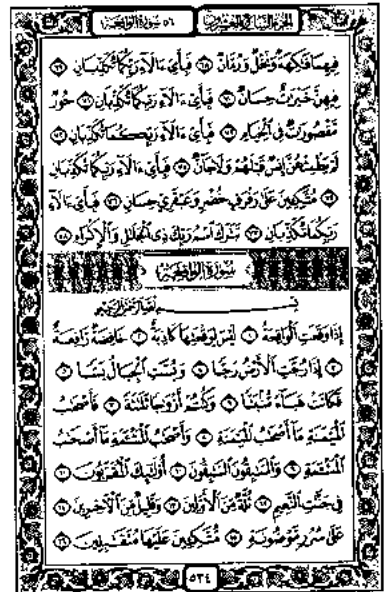 الجزء السابع والعشرون
٥٦ سورة الواقعة
فِيهِمَا فَٰكِهَةٌ وَنَخْلٌ وَرُمَّانٌ ٦٨ فَبِأَيِّ ءَالَآءِ رَبِّكُمَا تُكَذِّبَانِ ٦٩
فِيهِنَّ خَيْرَٰتٌ حِسَانٌ ٧٠ فَبِأَيِّ ءَالَآءِ رَبِّكُمَا تُكَذِّبَانِ ٧١ حُورٌ
مَّقْصُورَٰتٌ فِي ٱلْخِيَامِ ٧٢ فَبِأَيِّ ءَالَآءِ رَبِّكُمَا تُكَذِّبَانِ ٧٣
لَمْ يَطْمِثْهُنَّ إِنسٌ قَبْلَهُمْ وَلَا جَآنٌّ ٧٤ فَبِأَيِّ ءَالَآءِ رَبِّكُمَا تُكَذِّبَانِ
٧٥ مُتَّكِـِٔينَ عَلَىٰ رَفْرَفٍ خُضْرٍ وَعَبْقَرِيٍّ حِسَانٍ ٧٦ فَبِأَيِّ ءَالَآءِ
رَبِّكُمَا تُكَذِّبَانِ ٧٧ تَبَٰرَكَ ٱسْمُ رَبِّكَ ذِي ٱلْجَلَٰلِ وَٱلْإِكْرَامِ ٧٨
سُورَةُ الوَاقِعَةِ
بِسْمِ ٱللَّهِ ٱلرَّحْمَٰنِ ٱلرَّحِيمِ
إِذَا وَقَعَتِ ٱلْوَاقِعَةُ ١ لَيْسَ لِوَقْعَتِهَا كَاذِبَةٌ ٢ خَافِضَةٌ رَّافِعَةٌ
٣ إِذَا رُجَّتِ ٱلْأَرْضُ رَجًّا ٤ وَبُسَّتِ ٱلْجِبَالُ بَسًّا ٥
فَكَانَتْ هَبَآءً مُّنۢبَثًّا ٦ وَكُنتُمْ أَزْوَٰجًا ثَلَٰثَةً ٧ فَأَصْحَٰبُ
ٱلْمَيْمَنَةِ مَآ أَصْحَٰبُ ٱلْمَيْمَنَةِ ٨ وَأَصْحَٰبُ ٱلْمَشْـَٔمَةِ مَآ أَصْحَٰبُ
ٱلْمَشْـَٔمَةِ ٩ وَٱلسَّٰبِقُونَ ٱلسَّٰبِقُونَ ١٠ أُو۟لَٰٓئِكَ ٱلْمُقَرَّبُونَ ١١
فِي جَنَّٰتِ ٱلنَّعِيمِ ١٢ ثُلَّةٌ مِّنَ ٱلْأَوَّلِينَ ١٣ وَقَلِيلٌ مِّنَ ٱلْءَاخِرِينَ ١٤
عَلَىٰ سُرُرٍ مَّوْضُونَةٍ ١٥ مُّتَّكِـِٔينَ عَلَيْهَا مُتَقَٰبِلِينَ ١٦
٥٣٤